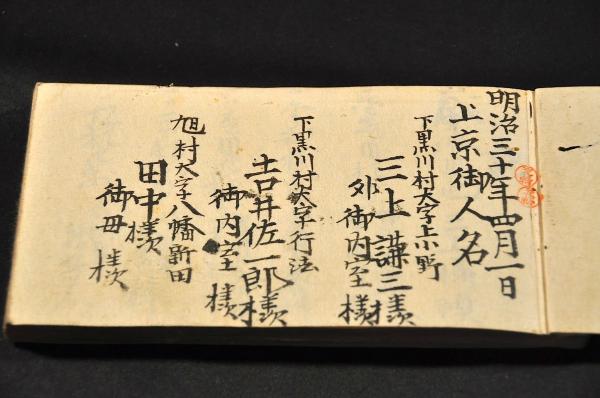 明治三十年四月一日
上京御人名
下黒川村大字上小野
三上謙三様
外御内室様
下黒川村大字行法
吉井佐一郎様
御内室様
旭村大字八幡新田
田中様
御母様
一